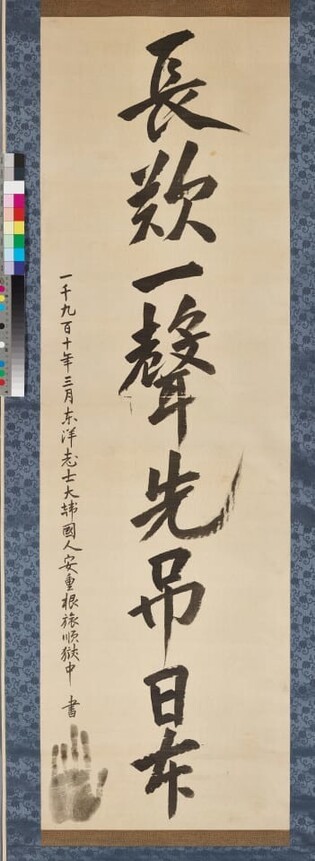 長歎一聲先吊日本
一千九百十年三月 东洋志士大韓國人安重根 旅順獄中 書